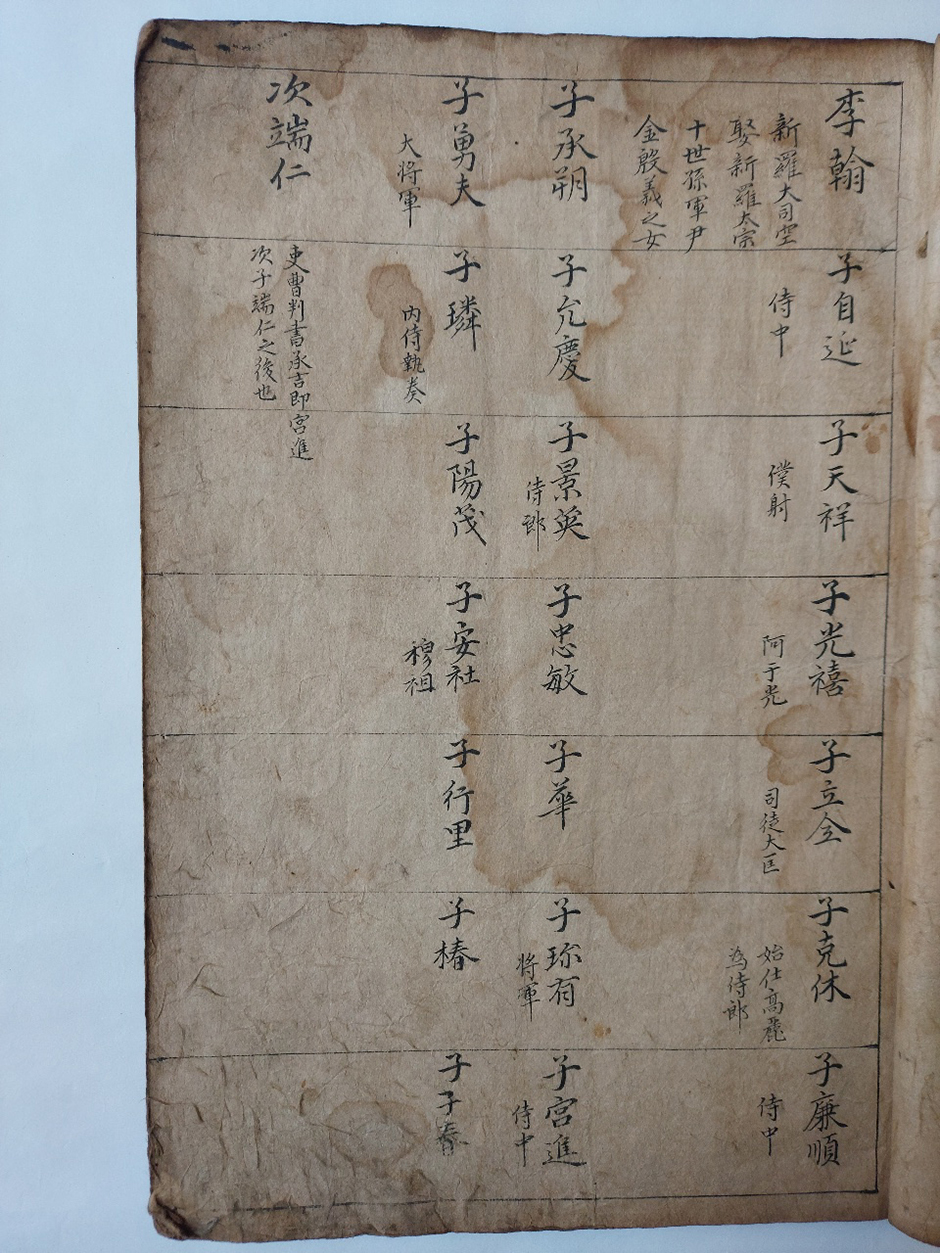 李翰
新羅大司空
娶新羅太宗
十世孫軍尹
金殷義之女
子自延
侍中
子天祥
僕射
子光禧
阿于光
子立全
司徒大匡
子克休
始仕高麗
為侍郎
子廉順
侍中
子承朔
子允慶
子景英
侍郎
子忠敏
子華
子珎有
將軍
子宮進
侍中
子勇夫
大將軍
子璘
內侍執奏
子陽茂
子安社
穆祖
子行里
子椿
子子春
次端仁
吏曹判書承吉即宮進
次子端仁之後也